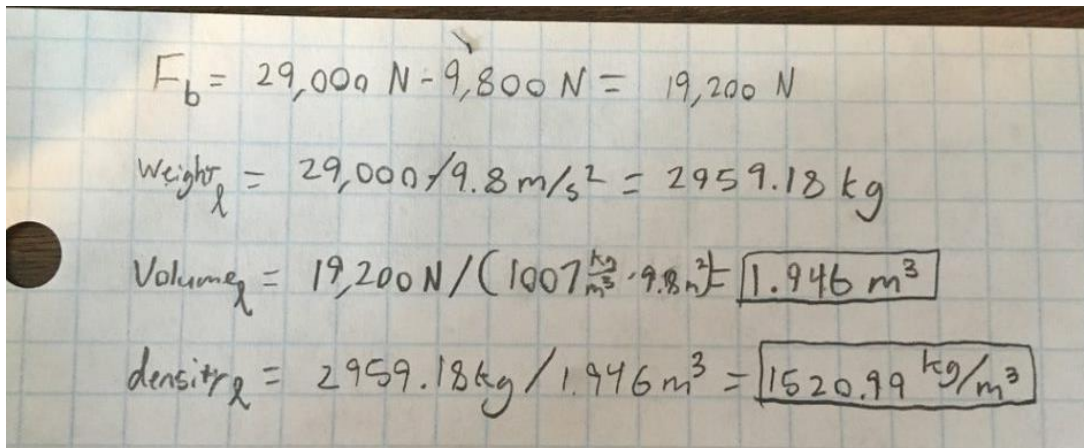 F_b = 29,000 N - 9,800 N = 19,200 N
Weight_l = 29,000/9.8 m/s² = 2959.18 kg
Volume_l = 19,200 N / (1007 kg/m³ · 9.8 m²) = 1.946 m³
density_l = 2959.18 kg / 1.946 m³ = 1520.99 kg/m³